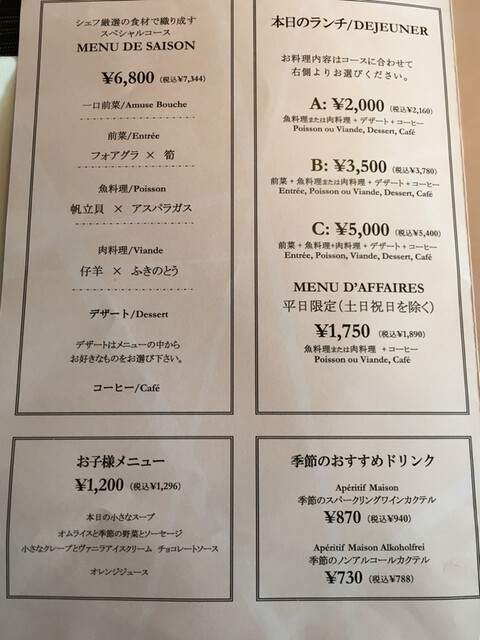 シェフ厳選の食材で織り成す
スペシャルコース
MENU DE SAISON
¥6,800 (税込¥7,344)
一口前菜/Amuse Bouche
前菜/Entrée
フォアグラ × 筍
魚料理/Poisson
帆立貝 × アスパラガス
肉料理/Viande
仔羊 × ふきのとう
デザート/Dessert
デザートはメニューの中から
お好きなものをお選び下さい。
コーヒー/Café
本日のランチ/DEJEUNER
お料理内容はコースに合わせて
右側よりお選びください。
A: ¥2,000 (税込¥2,160)
魚料理または肉料理 + デザート + コーヒー
Poisson ou Viande, Dessert, Café
B: ¥3,500 (税込¥3,780)
前菜 + 魚料理または肉料理 + デザート + コーヒー
Entrée, Poisson ou Viande, Dessert, Café
C: ¥5,000 (税込¥5,400)
前菜 + 魚料理+肉料理 + デザート + コーヒー
Entrée, Poisson, Viande, Dessert, Café
MENU D'AFFAIRES
平日限定(土日祝日を除く)
¥1,750 (税込¥1,890)
魚料理または肉料理 + コーヒー
Poisson ou Viande, Café
お子様メニュー
¥1,200 (税込¥1,296)
本日の小さなスープ
オムライスと季節の野菜とソーセージ
小さなクレープとヴァニラアイスクリーム チョコレートソース
オレンジジュース
季節のおすすめドリンク
Apéritif Maison
季節のスパークリングワインカクテル
¥870 (税込¥940)
Apéritif Maison Alkoholfrei
季節のノンアルコールカクテル
¥730 (税込¥788)